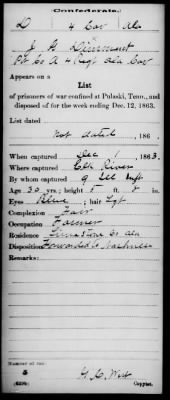 Confederate.
D 4 Cav Ala
J. H.
Pvt Co A 4 Regt Ala Cav
Appears on a
List
of prisoners of war confined at Pulaski, Tenn., and
disposed of for the week ending Dec. 12, 1863.
List dated
Not dated, 186 .
When captured Dec 1, 1863.
Where captured Elk River
By whom captured 9 Ill Inft
Age 30 yrs; height 5 ft. 8 in.
Eyes Blue; hair Lgt
Complexion Fair
Occupation Farmer
Residence Limestone Co Ala
Disposition Forwarded to Nashville
Remarks:
Number of roll:
5
Copyist.